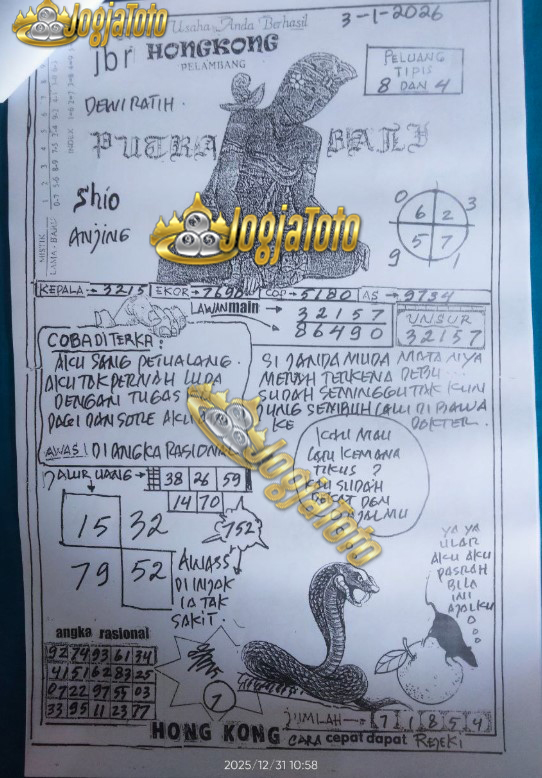 JogjaToto
Usaha Anda Berhasil
3-1-2026
jbr HONGKONG
PELAMBANG
PELUANG
TIPIS
8 DAN 4
DEWI RATIH.
PUTRA BALI
Shio
ANJING
MISTIK
LAMA - BARU
INDEX
0 3
6 2
5 7
9 1
JogjaToto
KEPALA → 3215 EKOR → 7698 COP → 5180 AS → 9734
LAWANmain → 32157
86490
UNSUR
32157
COBA DITERKA:
AKU SANG PETUALANG.
AKU TAK PERNAH LUPA
DENGAN TUGAS
PAGI DAN SORE AKU
AWAS! DI ANGKA RASIONAL
SI JANDA MUDA MATA NYA
MERAH TERKENA DEBU..
SUDAH SEMINGGU TAK KUN
JUNG SEMBUH LALU DI BAWA
KE DOKTER.
JogjaToto
KAU MAU
LARI KEMANA
TIKUS ?
KAU SUDAH
DEKAT DEN
AJALMU
JALUR UANG → 38 26 59
14 70
15 32
79 52
752
AWASS
DI INJAK
IA TAK
SAKIT.
YA YA
ULAR
AKU AKU
PASRAH
BILA
INI
AJALKU
angka rasional
92 74 93 61 34
41 51 62 83 25
07 22 97 55 03
33 95 11 23 77
7
JUMLAH → 7 1 8 5 4
HONG KONG CARA cepat dapat REJEKI
2025/12/31 10:58